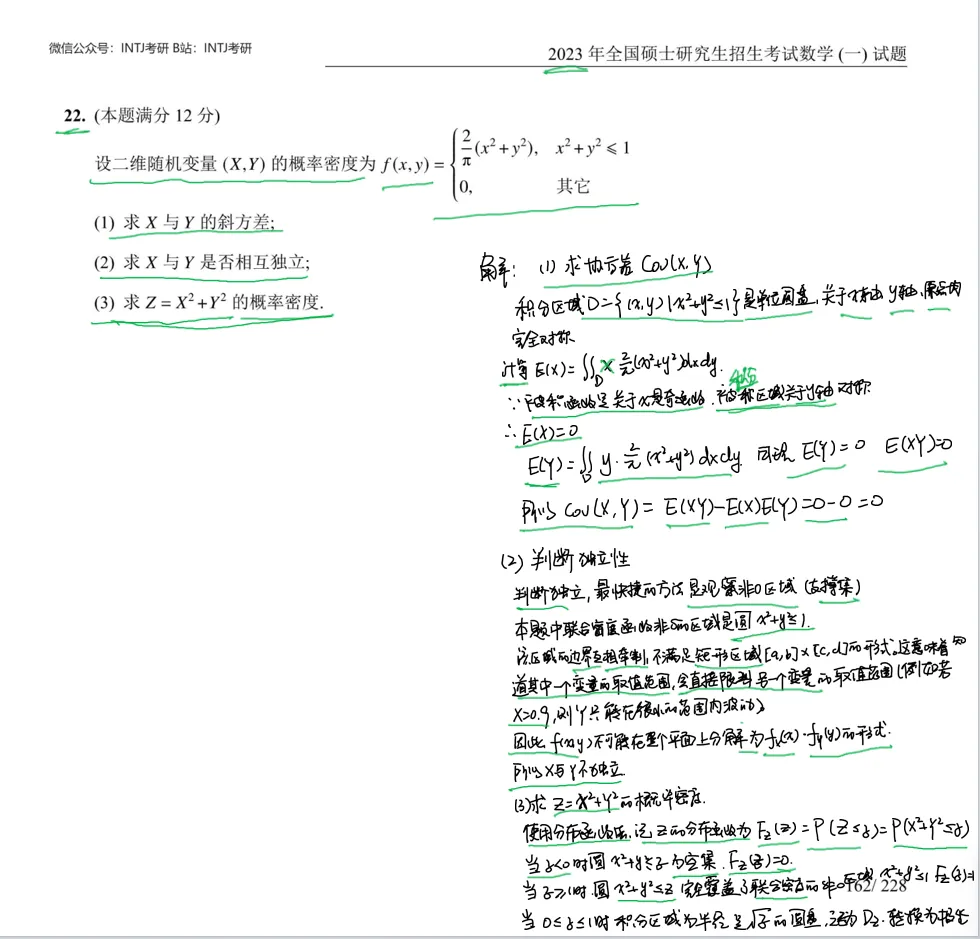 微信公众号：INTJ考研 B站：INTJ考研
2023 年全国硕士研究生招生考试数学 (一) 试题
22. (本题满分 12 分)
设二维随机变量 (X,Y) 的概率密度为 f(x,y) = { 2/π (x²+y²), x²+y² ⩽ 1
0, 其它
(1) 求 X 与 Y 的斜方差;
(2) 求 X 与 Y 是否相互独立;
(3) 求 Z = X²+Y² 的概率密度.
解: (1) 求协方差 Cov(X,Y)
积分区域D={(x,y)|x²+y²≤1}是单位圆盘,关于x轴 y轴,原点均
完全对称
计算 E(X)=∬_D x 2/π(x²+y²)dxdy.
∵被积函数是关于x是奇函数.积分区域关于y轴对称
∴E(X)=0
E(Y)=∬_D y·2/π(x²+y²)dxdy 同理 E(Y)=0 E(XY)=0
所以 Cov(X,Y)= E(XY)-E(X)E(Y)=0-0=0
(2) 判断独立性
判断独立,最快捷的方法是观察非0区域 (支撑集)
本题中联合密度函数非0的区域是圆 x²+y²≤1.
该区域的边界互相牵制,不满足矩形区域[a,b]×[c,d]的形式.这意味着知
道其中一个变量的取值范围,会直接限制另一个变量的取值范围(例如若
X=0.9,则Y只能在很小的范围内波动)
因此 f(x,y)不可能在整个平面上分解为f_X(x)·f_Y(y)的形式.
所以X与Y不独立.
(3)求 Z=X²+Y²的概率密度.
使用分布函数法,记Z的分布函数为F_Z(z)=P(Z≤z)=P(X²+Y²≤z)
当z<0时圆 x²+y²≤z 为空集. F_Z(z)=0.
当z≥1时.圆 x²+y²≤z 完全覆盖了联合密度的非0区域 x²+y²≤1 F_Z(z)=1
162/ 228
当 0≤z≤1时 积分区域为半径是√z的圆盘,记为 D_z. 转换为极坐